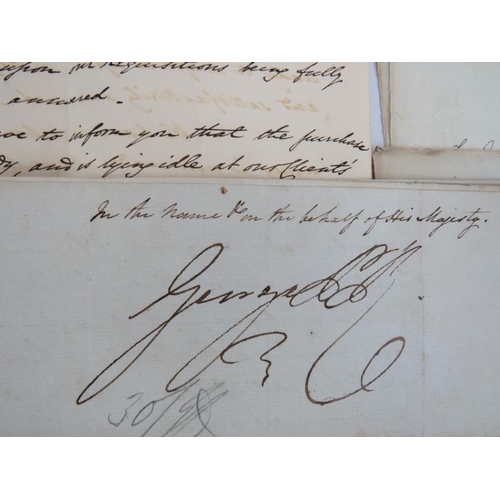 upon our Requisitions being fully
answered.
to inform you that the purchase
and is lying idle at our Client's
In the Name & on the behalf of His Majesty.
George P
R
30/